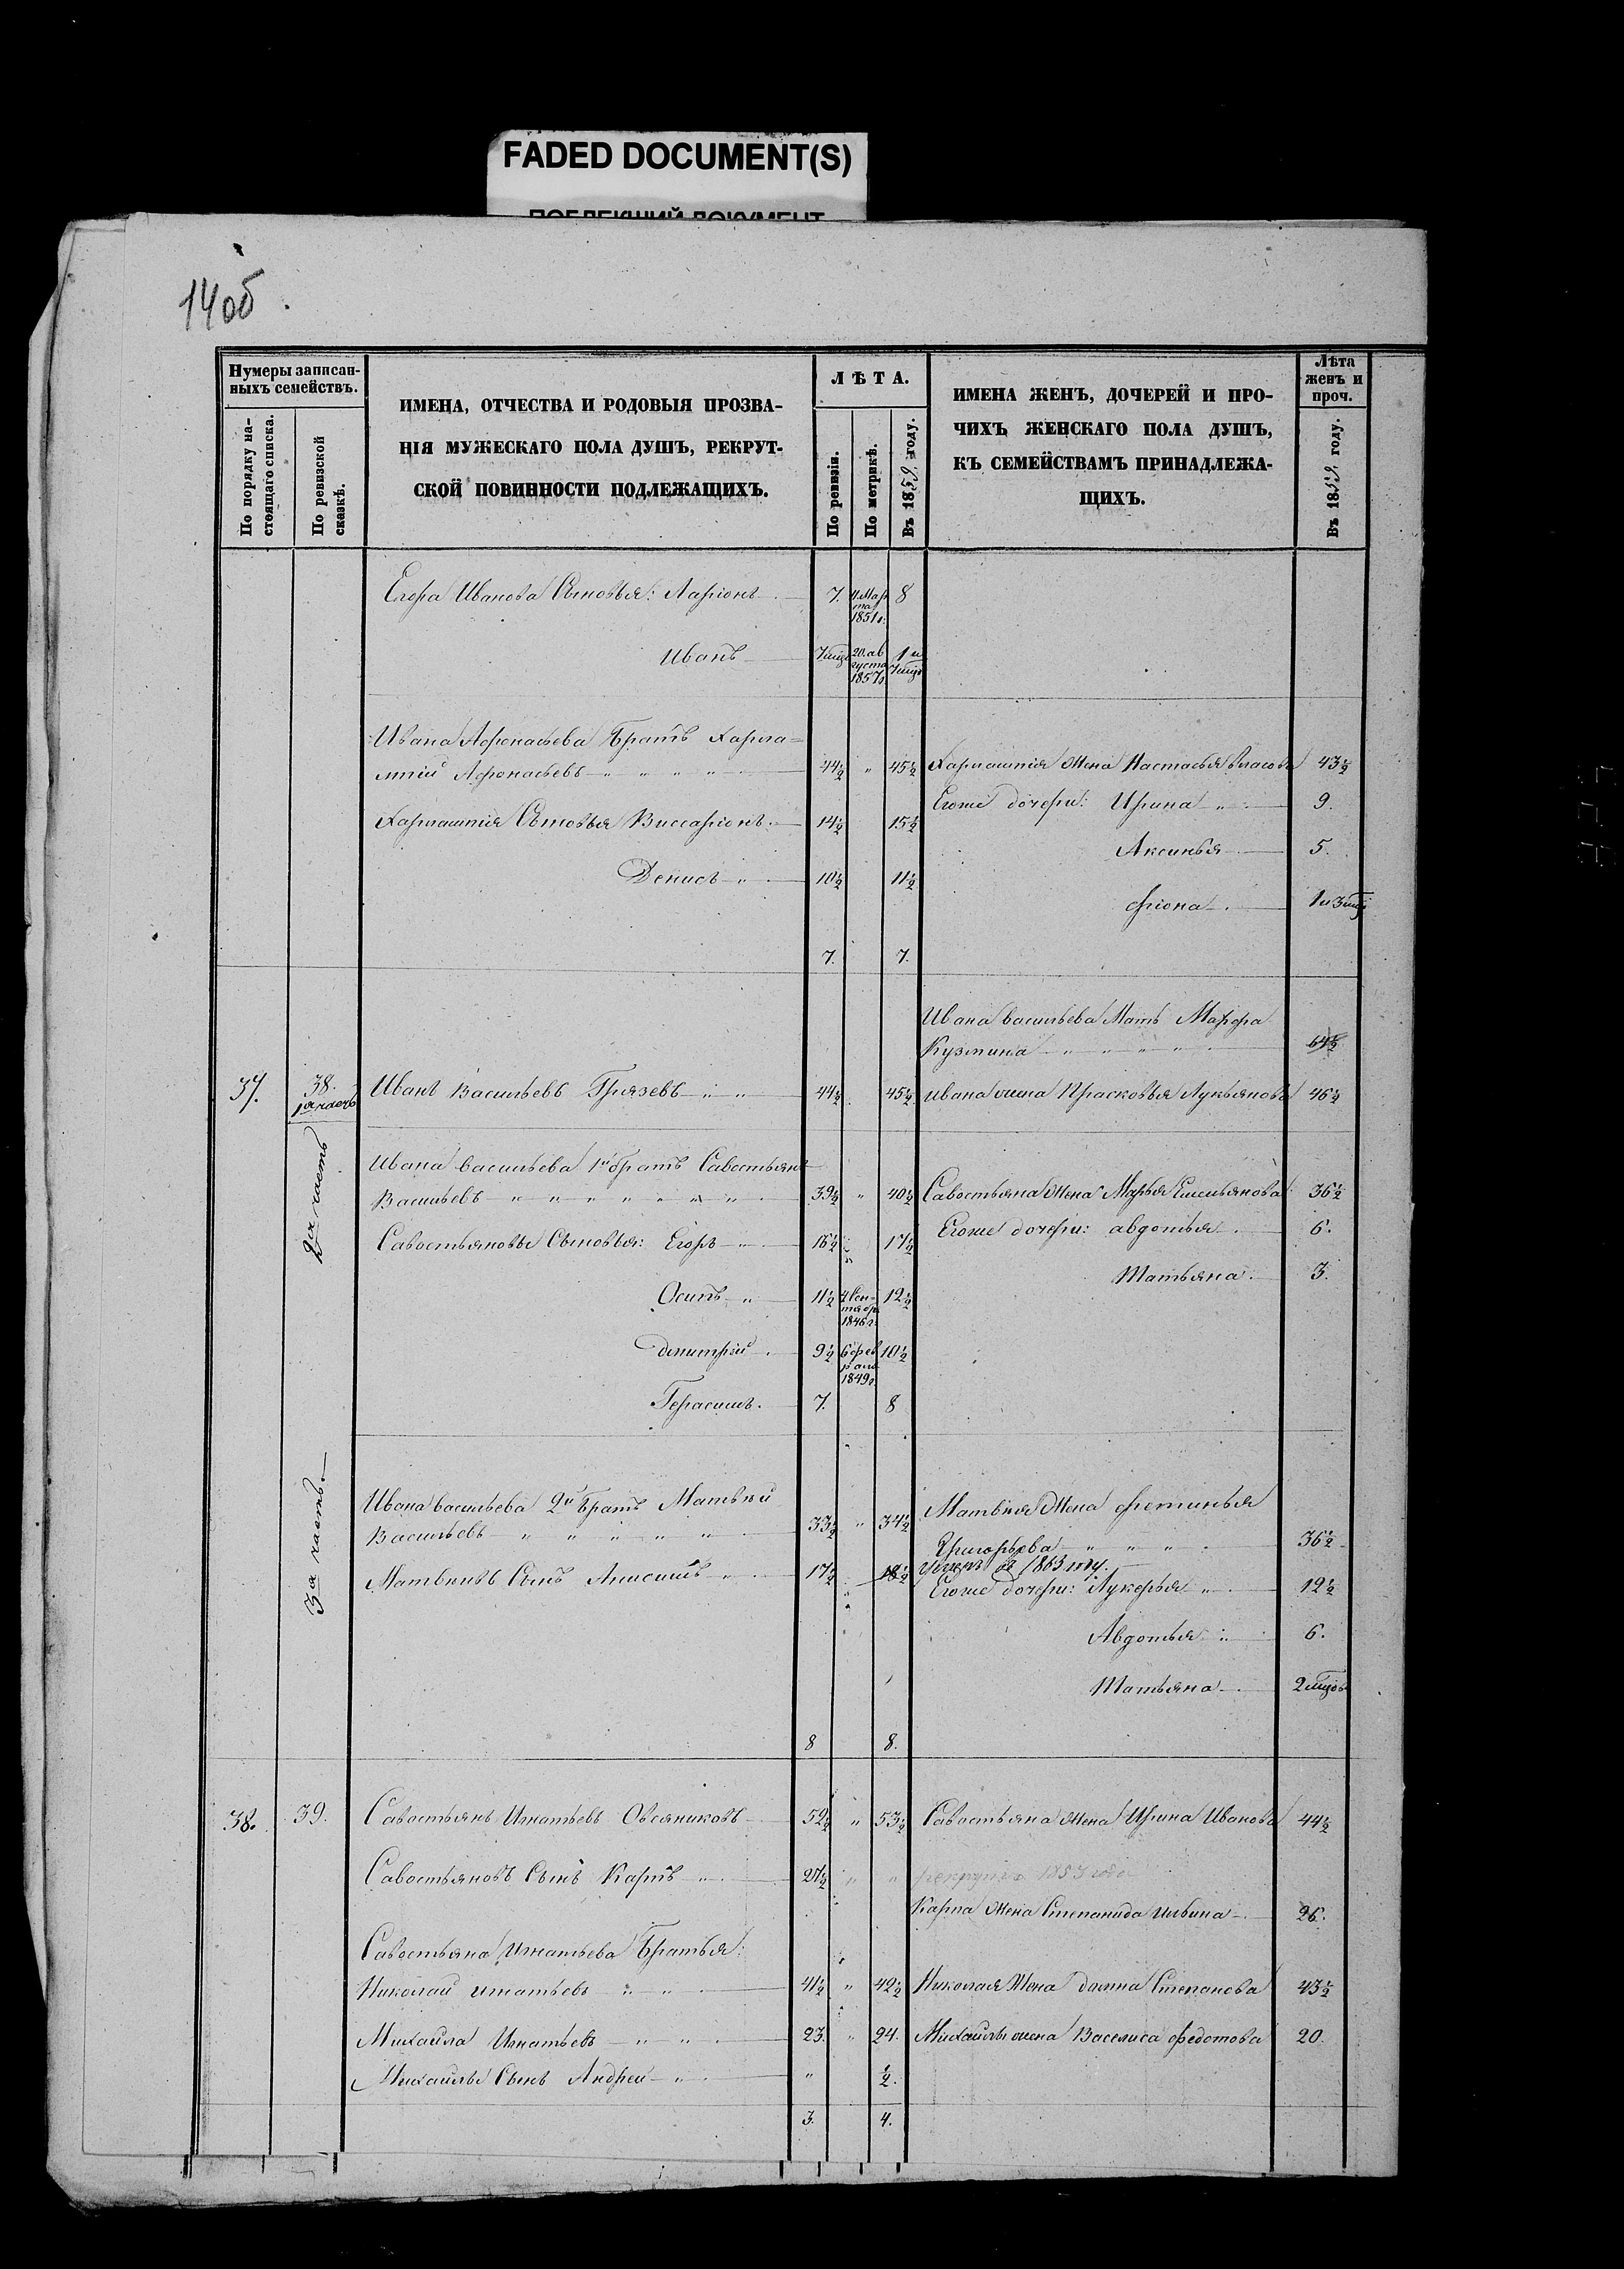 FADED DOCUMENT(S)
14об.
Нумеры записан-
ныхъ семействъ.
По порядку на-
стоящаго списка.
По ревизской
сказкѣ.
ИМЕНА, ОТЧЕСТВА И РОДОВЫЯ ПРОЗВА-
НІЯ МУЖЕСКАГО ПОЛА ДУШЪ, РЕКРУТ-
СКОЙ ПОВИННОСТИ ПОДЛЕЖАЩИХЪ.
ЛѢТА.
По ревизіи.
По метрикѣ.
Въ 1859 году.
ИМЕНА ЖЕНЪ, ДОЧЕРЕЙ И ПРО-
ЧИХЪ ЖЕНСКАГО ПОЛА ДУШЪ,
КЪ СЕМЕЙСТВАМЪ ПРИНАДЛЕЖА-
ЩИХЪ.
Лѣта
женъ и
проч.
Въ 1859 году.
Егора Иванова Сыновья: Ларіонъ 7. 4 Мар
та
1851г. 8
Иванъ 7 мцъ 20 ав
густа
1857г. 1 и
7 мцъ
Ивана Афонасьева Братъ Харла=
мпій Афонасьевъ " " " " 44½ " 45½ Харлампія Жена Настасья Власова 43½
Егоже дочери: Ирина " 9.
Харлампія Сыновья Виссаріонъ. 14½ 15½
Аксинья 5.
Денисъ " 10½ 11½
фіона 1 и 3 мцъ
7. 7.
Ивана васильева Мать Мафра
Кузмина " " " " 64½
37. 38.
1я часть Иванъ Васильевъ Грязевъ " " 44½ 45½ ивана жена Прасковья Лукьянова 46½
2я часть
Ивана васильева 1й братъ Савостьянъ
Васильевъ " " " " " " " 39½ " 40½ Савостьяна Жена Марья Емельянова 36½
Егоже дочери: авдотья 6.
Савостьяновы Сыновья: Егоръ " 16½ 17½
Татьяна. 3.
Осипъ " 11½ 4 Сен-
тября
1846г. 12½
дмитрій 9½ 6 фев
раля
1849г. 10½
Герасимъ. 7. 8
3я часть.
Ивана васильева 2й Братъ Матвѣй
Васильевъ " " " " " 33½ " 34½ Матвѣя Жена фетинья
Григорьева " " " 36½
Матвѣевъ Сынъ Анисимъ " 17½ 18½ Умеръ въ 1863 году.
Егоже дочери: Лукерья " 12½
Авдотья " 6.
Татьяна 2 мцовъ
8 8.
38. 39. Савостьянъ Игнатьевъ Овсяниковъ 52½ " 53½ Савостьяна Жена Ирина Иванова 44½
Савостьяновъ Сынъ Карпъ " 27½ " " рекрутъ 1857 года
Карпа Жена Степанида Ильина 26.
Савостьяна Игнатьева Братья:
Николай игнатьевъ " " 41½ " 42½ Николая Жена домна Степанова 43½
Михаила Игнатьевъ " " 23. " 24. Михаилы жена Василиса федотова 20.
Михаилы Сынъ Андрей " " ½.
3. 4.